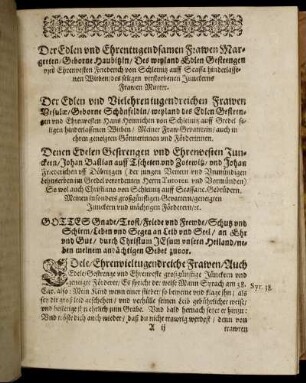 Der Edlen vnd Ehrentugendsamen Frawen Mar-
greten/ Geborne Haubitzin/ Des weyland Edlen Gestrengen
vnd Ehrenvesten Friederich von Schleinitz auff Seusa hinderlasse-
nen Witben/ des seligen verstorbenen Jünckerns
Frawen Mutter.
Der Edlen vnd Vielehrentugendreichen Frawen
Vrsulæ/ Geborne Schönfeldin/ weyland des Edlen Gestren-
gen vnd Ehrnvesten Hans Heinrichen von Schleinitz auff Grebel se-
ligen hinderlassenen Witben/ Meiner Fraw Gevatterin/ auch in
ehren geneigten Gönnerinnen vnd Förderinnen.
Denen Edelen Gestrengen vnd Ehrenvesten Jün-
ckern/ Johan Bastian auff Tscheten vnd Zottwitz/ vnd Johan
Friederichen vff Döbritzgen
So wol auch Christiano von Schleinitz auff Gebrüdern.
Meinen insonders großgünstigen Gevattern/geneigten
Jünckern vnd mächtigen Förderern.
GOTTES Gnade/ Trost/ Friede vnd Frewde/ Schutz vnd
Schirm/ Leben vnd Segen an Leib vnd Seel/ an Ehr
vnd Gut/ durch Christum JEsum vnsern Heiland/ ne-
ben meinem andächtigen Gebet zuvor.
EDele/ Ehrenvieltugendreiche Frawen/ Auch
Edele/ Gestrenge vnd Ehrenveste großgünstige Jünckern vnd
geneigte Förderer. Es spricht der weise Mann Syrach am 38.
Cap. also: Mein Kind wenn einer stirbet/ so beweine vnd klage jhn/ als
sey dir groß leid geschehen/ vnd verhülle seinen Leib gebührlicher weise/
und bestatige jhn ehrlich zum Grabe. Vnd bald hernach setzet er hinzu:
Vnd tröste dich auch wieder/ daß du nicht trawrig werdest/ denn von
A ij
trawren
Syr. 38.